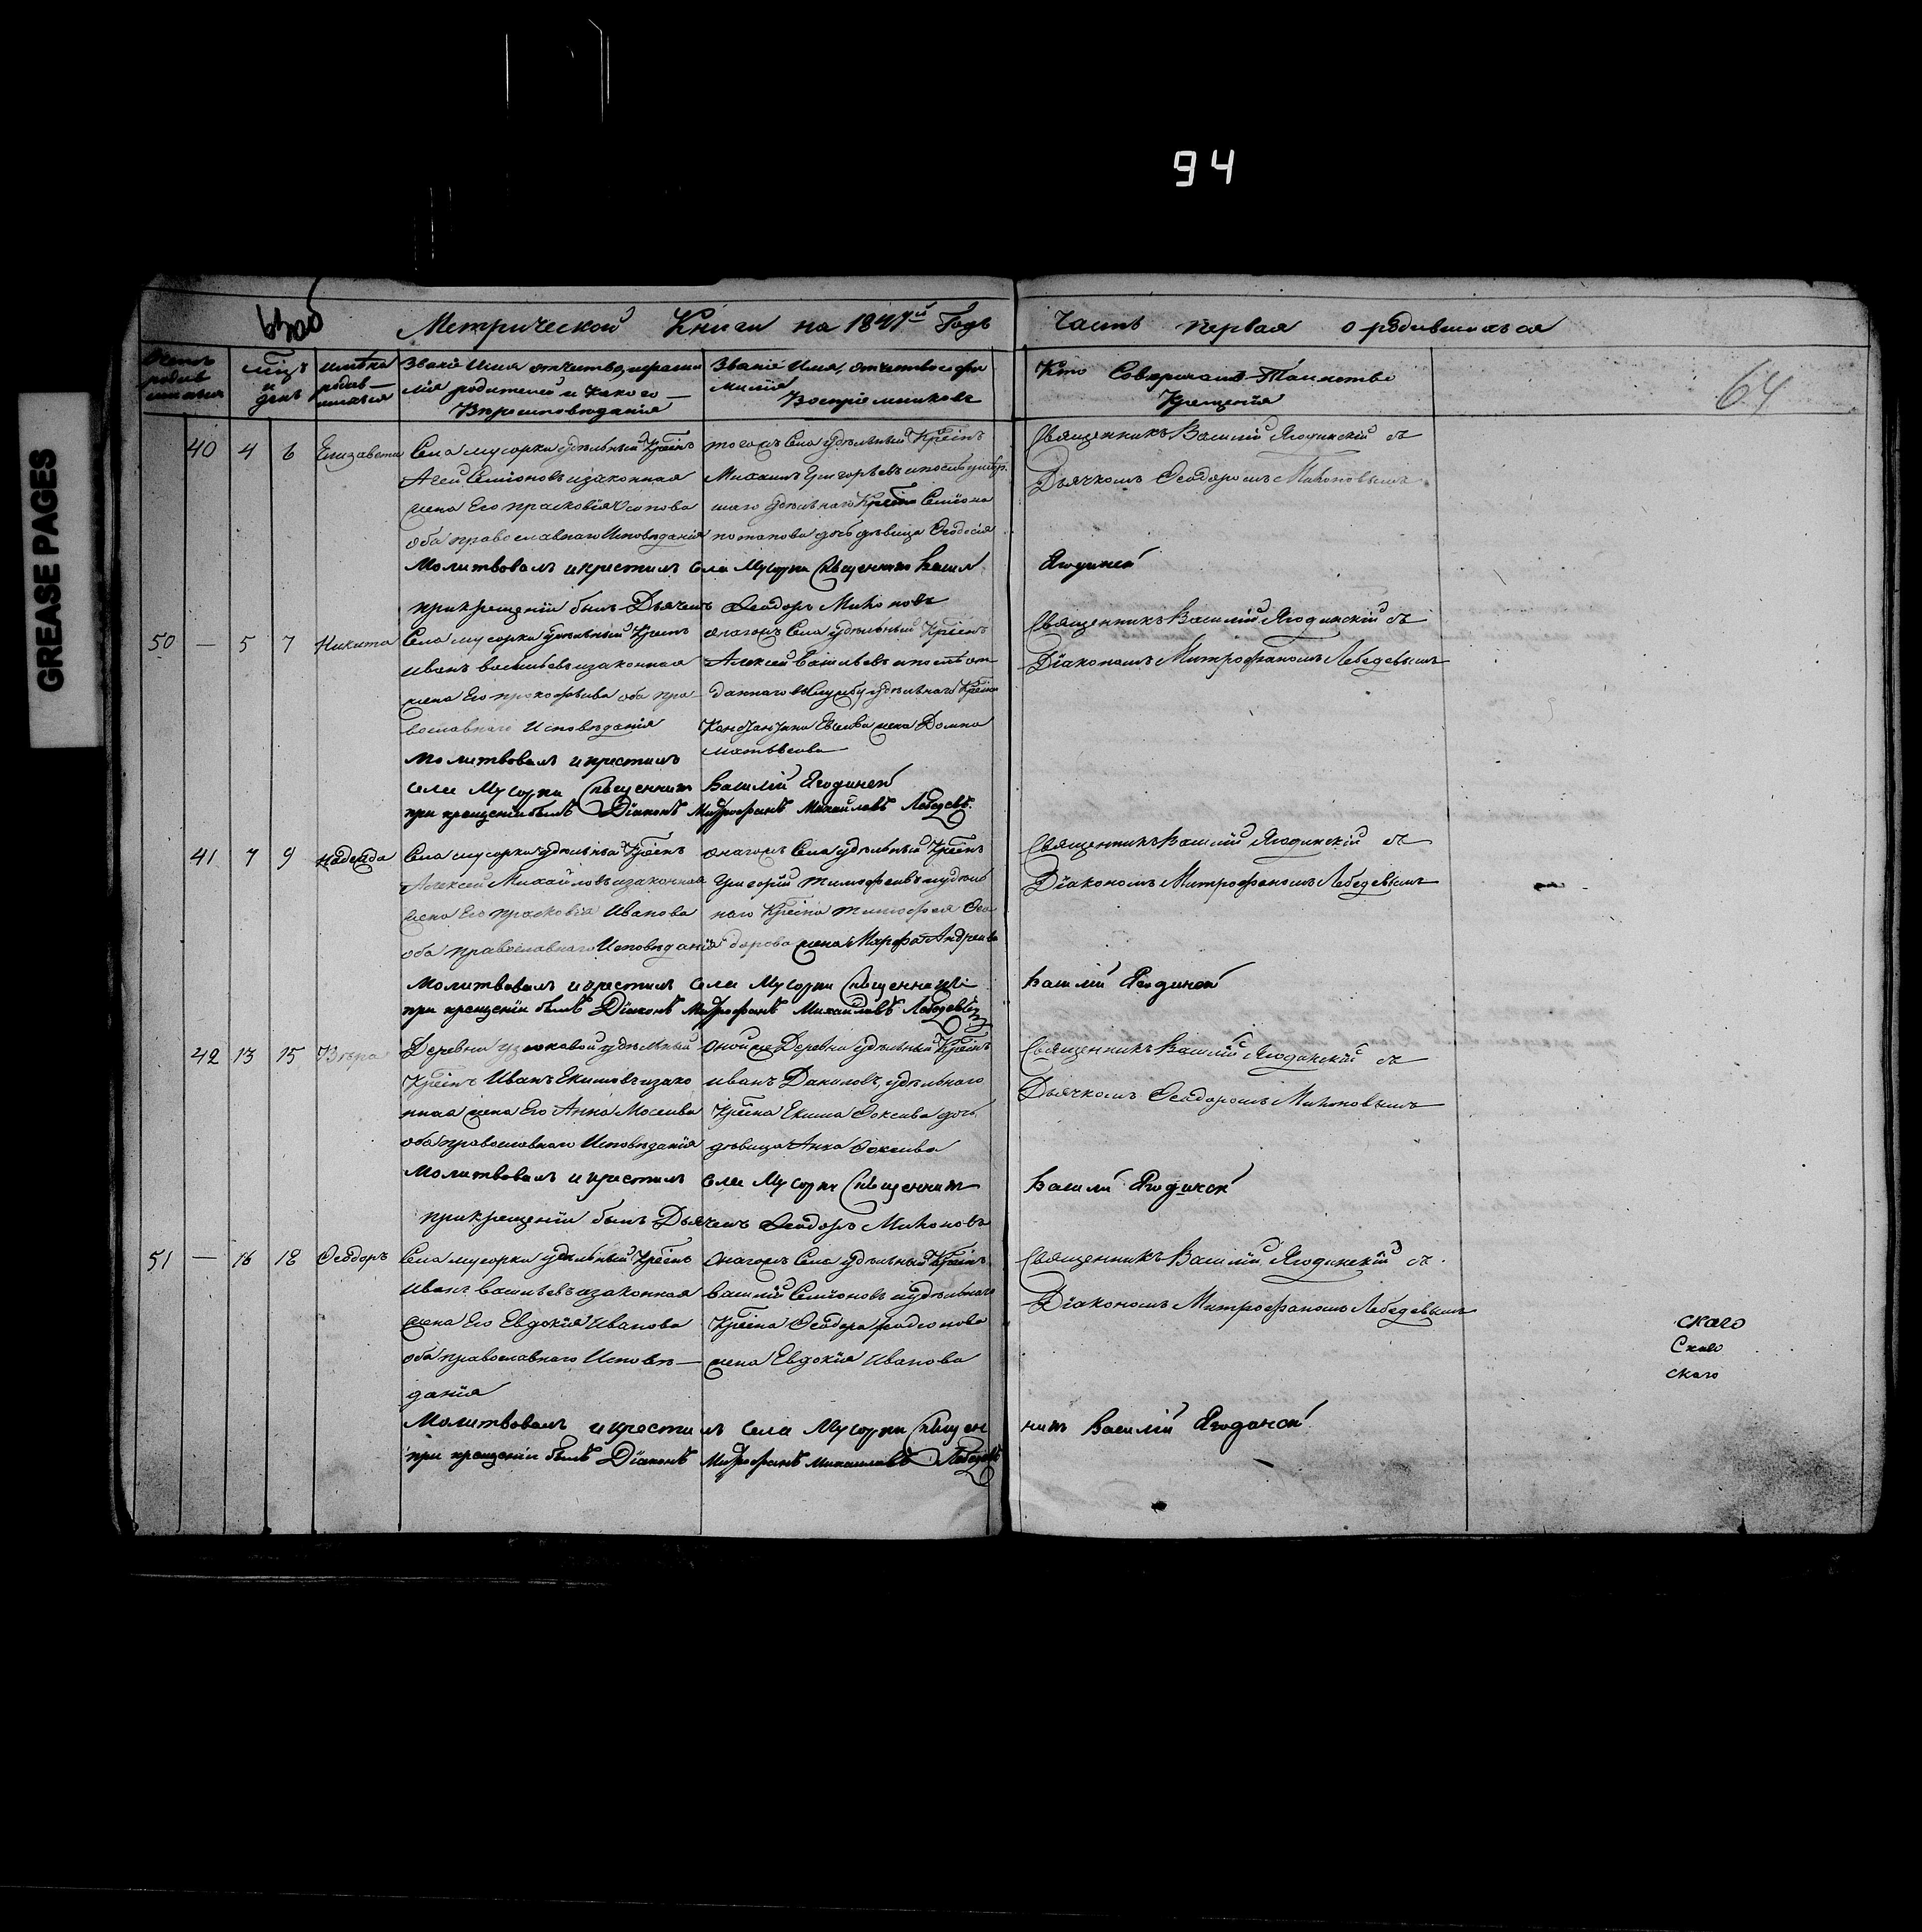 94
GREASE PAGES
63об
Метрической Книги на 1847й Годъ Часть первая о родившихся
64
Счетъ родившихся
мцъ и день
имена родившихся
Званіе Имя отчитво, и фамилія родителей и какого Вѣроисповѣданія
Званіе Имя, отчитво и фамилія Воспріемниковъ
Кто Совершалъ Таинство Крещенія
40 4 6 Елизавета
Села мусорки удѣльный Крѣінъ
Агей Семіоновъ и законная
жена Его прасковія Осипова
оба православнаго Исповѣданія
тогожъ Села удѣльный Крѣінъ
Михаилъ Григорьевъ и послѣ умер
шаго удѣльнаго Крѣіна Семіона
потапова дочь дѣвица Ѳеодосія
Священникъ Василій Ягодинскій съ
Дьячкомъ Ѳеодоромъ Михоновымъ
Молитвовалъ и крестилъ Села Мусорки Священникъ Васил Ягодинск
при крещеніи былъ Дьячекъ Ѳеодоръ Михоновъ
50 — 5 7 Никита
Села мусорки удѣльный Крѣінъ
Иванъ васильевъ и законная
жена Его прокофьева оба пра
вославнаго Исповѣданія
онагожъ Села удѣльный Крѣінъ
Алексей Васильевъ и послѣ от
даннаго въ Службу удѣльнаго Крѣіна
жена Домна
матвѣева
Священникъ Василій Ягодинскій съ
Діакономъ Митрофаномъ Лебедевымъ
Молитвовалъ и крестилъ
села Мусорки Священникъ Василій Ягодинск
при крещеніи былъ Діаконъ Митрофанъ Михайловъ Лебедевъ
41 7 9 Надежда
Села мусорки удѣльный Крѣінъ
Алексей Михайловъ и законная
жена Его прасковіа Иванова
оба православнаго Исповѣданія
онагожъ Села удѣльный Крѣінъ
Григорій тимофеевъ и удѣль
наго Крѣіна тимофея Ѳео
дорова жена Марфа Андреева
Священникъ Василій Ягодинскій съ
Діакономъ Митрофаномъ Лебедевымъ
Молитвовалъ и крестилъ Села Мусорки Священникъ Василій Ягодинск
при крещеніи былъ Діаконъ Митрофанъ Михайловъ Лебедевъ
42 13 15 Вѣра
Деревни узюковой удѣльный
Крѣінъ Иванъ Екимовъ и зако
нная жена Его Анна Мосеева
оба православнаго Исповѣданія
Оной же Деревни удѣльный Крѣінъ
иванъ Даниловъ, удѣльнаго
Крѣіна Екима Фокеива дочь
дѣвица Анна Фокеива
Священникъ Василій Ягодинскій съ
Дьячкомъ Ѳеодоромъ Михоновымъ
Молитвовалъ и крестилъ села Мусорки Священникъ Василій Ягодинск
при крещеніи былъ Дьячекъ Ѳеодоръ Михоновъ
51 — 16 18 Ѳеодоръ
Села мусорки удѣльный Крѣінъ
Иванъ васильевъ и законная
жена Его Евдокія Иванова
оба православнаго Исповѣ—
данія
Онагожъ Села удѣльный Крѣінъ
Василій Семіоновъ и удѣльнаго
Крѣіна Ѳеодора родионова
жена Евдокія Иванова
Священникъ Василій Ягодинскій съ
Діакономъ Митрофаномъ Лебедевымъ
скаго
Скаго
скаго
Молитвовалъ и крестилъ села Мусорки Священ никъ Василій Ягодинск
при крещеніи былъ Діаконъ Митрофанъ Михаиловъ Лебедевъ